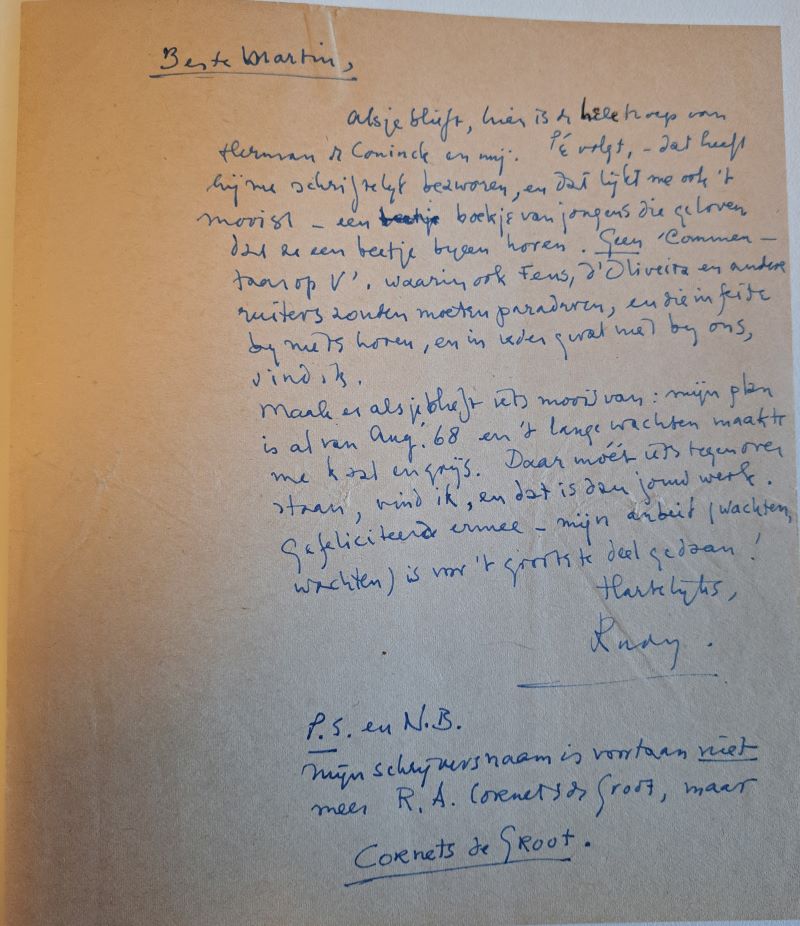 Beste Martin,
Alsjeblieft, hier is de hele troep van
Herman de Coninck en mij. Pé volgt, – dat heeft
hij me schriftelijk bezworen, en dat lijkt me ook 't
mooist – een beetje boekje van jongens die geloven
dat ze een beetje bijeen horen. Geen 'Commen-
taar op V'. waarin ook Fens, d'Oliveira en andere
ruiters zouden moeten paraderen, en die in feite
bij niets horen, en in ieder geval niet bij ons,
vind ik.
Maak er alsjeblieft iets moois van: mijn plan
is al van Aug. '68 en 't lange wachten maakte
me kaal en grijs. Daar móét iets tegenover
staan, vind ik, en dat is dan jouw werk.
Gefeliciteerd ermee – mijn arbeid (wachten,
wachten) is voor 't grootste deel gedaan!
Hartelijks,
Rudy.
P.S. en N.B.
Mijn schrijversnaam is voortaan niet
meer R. A. Cornets de Groot, maar
Cornets de Groot.